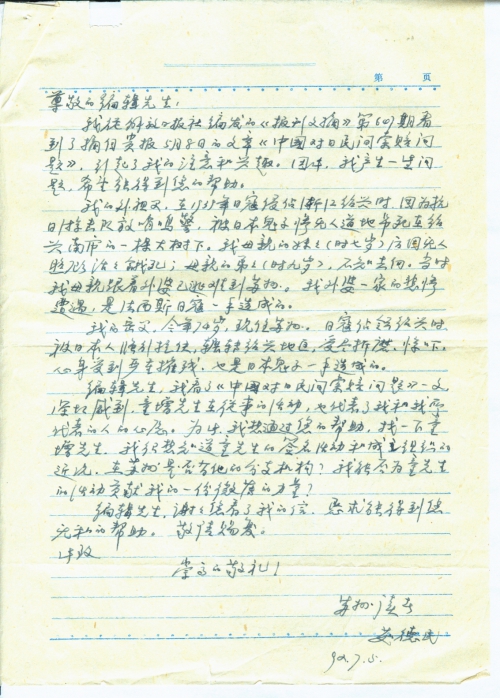 第 页
尊敬的编辑先生：
我从解放日报社编发的《报刊文摘》第601期看
到了摘自贵报5月8日的文章《中国对日民间索赔问
题》，引起了我的注意和兴趣。因此，我产生一些问
题，希望能得到您的帮助。
我的外祖父，在1939年日寇侵佔浙江绍兴时，因为抗
日游击队放哨鸣警，被日本鬼子惨无人道地吊死在绍
兴南市的一棵大树下。我母亲的妹妹（时七岁）后因无人
照顾活活饿死；母亲的弟弟（时九岁），不知去向。当时
我母亲跟着外婆已逃难到苏州。我外婆一家的悲惨
遭遇，是法西斯日寇一手造成的。
我的亲父，今年74岁，现住苏州。日寇佔领绍兴时
被日本人拉，辗转绍兴地区，受尽折磨，
心身受到摧残，也是日本鬼子一手造成的。
编辑先生，我看了《中国对日民间索赔问题》一文
深切感到，童增先生在从事的活动，也代表了我和我所
代表的人的心愿。为此，我想通过您的帮助，找一下童
增先生。我很想知道童先生的签名活动和成立组织的
近况，在苏州是否有他的分支机构？我能否为童先生
的活动贡献我的一份微薄的力量？
编辑先生，谢谢您看了我的信，恳求能得到您
无私的帮助。敬请赐复。
此致
崇高的敬礼！
苏州·读者
德民
92.7.5.